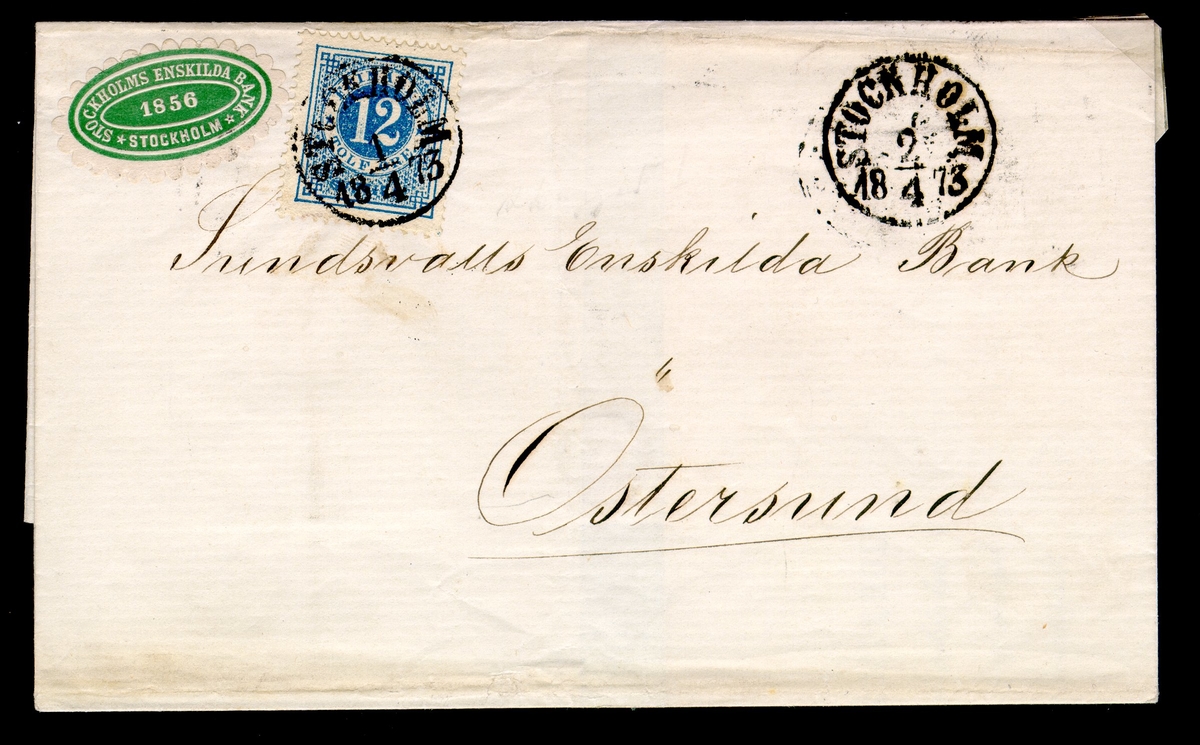 STOCKHOLMS ENSKILDA BANK
1856
STOCKHOLM
12
STOCKHOLM
1
18 4 73
STOCKHOLM
2
18 4 73
Sundsvalls Enskilda Bank
Östersund